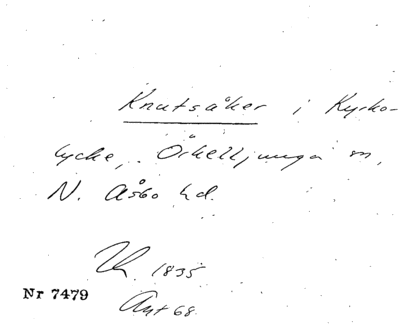 Knutsåker i Kyrko-
lycke, Örkelljunga sn,
N. Åsbo hd.
1835
Nr 7479
Ant 68